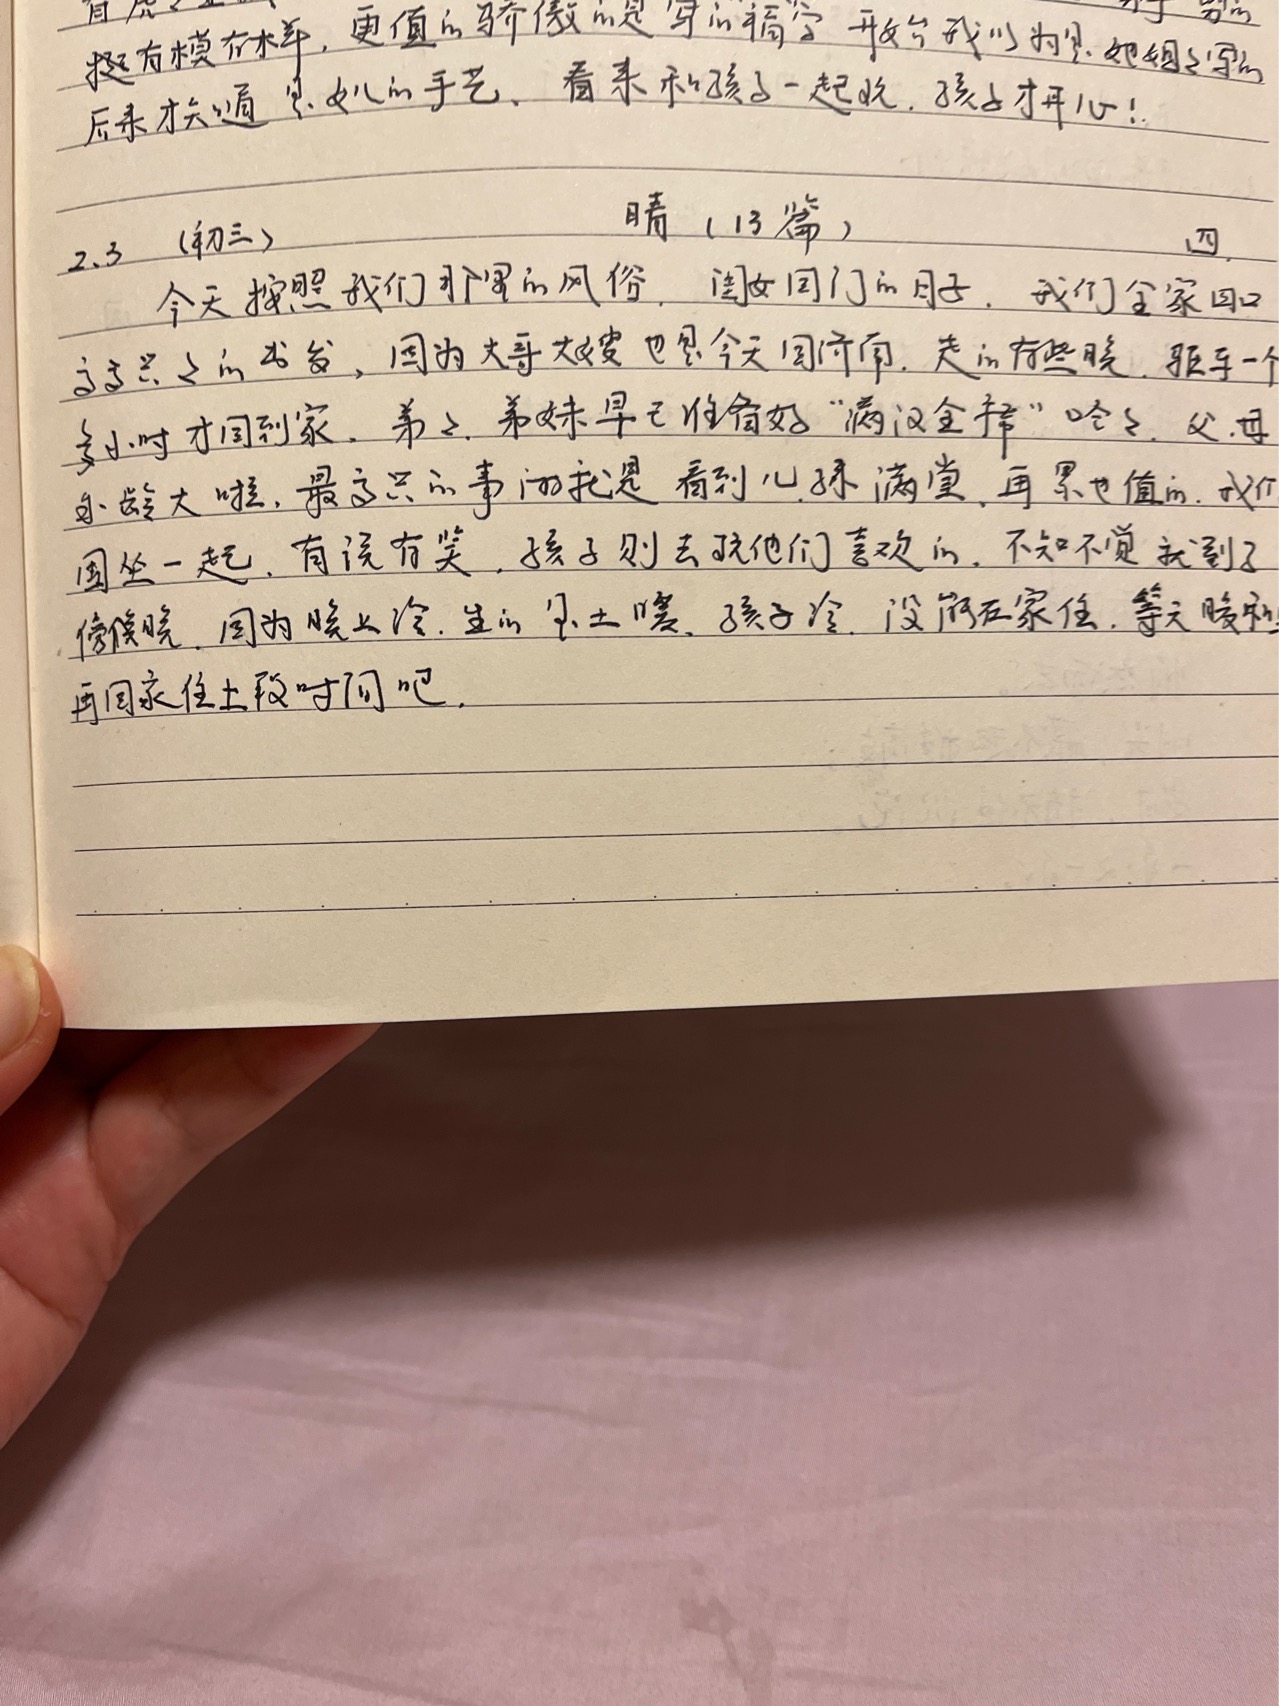 挺有模有样，更值的骄傲的是写的福字 开始我以为是她姐姐写的
后来才知道是女儿的手艺、看来和孩子一起玩，孩子才开心！
2.3 （初三） 晴（13篇） 四
今天按照我们那里的风俗，闺女回门的日子，我们全家四口
高高兴兴的出发，因为大哥大嫂也是今天回济南，走的有些晚，驱车一个
多小时才回到家，弟弟、弟妹早已准备好“满汉全席”哈哈，父、母
年龄大啦，最高兴的事情就是看到儿孙满堂、再累也值的，我们
围坐一起，有说有笑，孩子则去玩他们喜欢的，不知不觉就到了
傍晚，因为晚上冷，生的是土暖、孩子冷，没能在家住，等天暖和
再回家住上段时间吧，